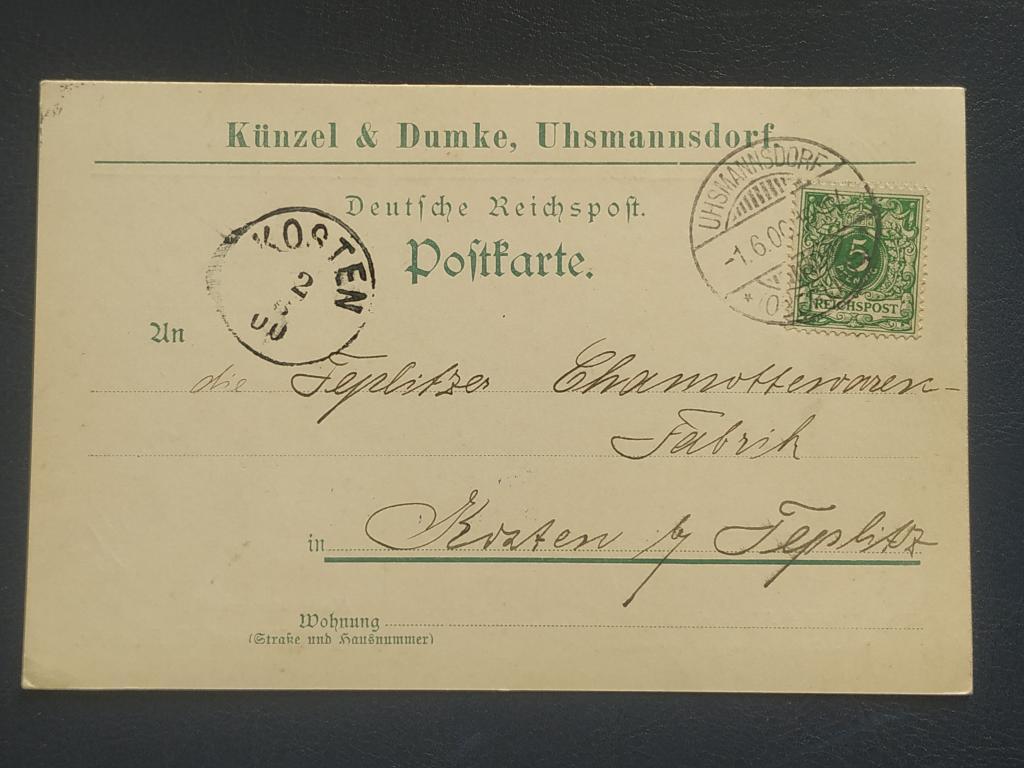 Künzel & Dumke, Uhsmannsdorf.
Deutsche Reichspost.
Postkarte.
UHSMANNSDORF
-1.6.00
KOSTEN
2
6
00
5
REICHSPOST
An
die Teplitzer Chamottewaren-
Fabrik
in Kosten b/ Teplitz
Wohnung
(Straße und Hausnummer)